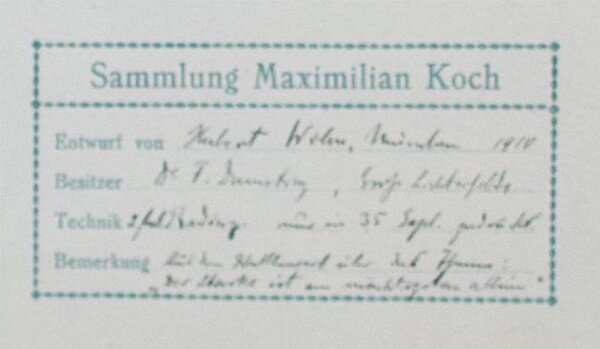 Sammlung Maximilian Koch
Entwurf von Hubert Wilm, München 1910
Besitzer Dr. F. , Groß Lichterfelde
Technik 2 fbl. Radierg. nur in 35 Expl. gedruckt.
Bemerkung Aus dem über das Thema:
„Der Starke ist am mächtigsten allein"